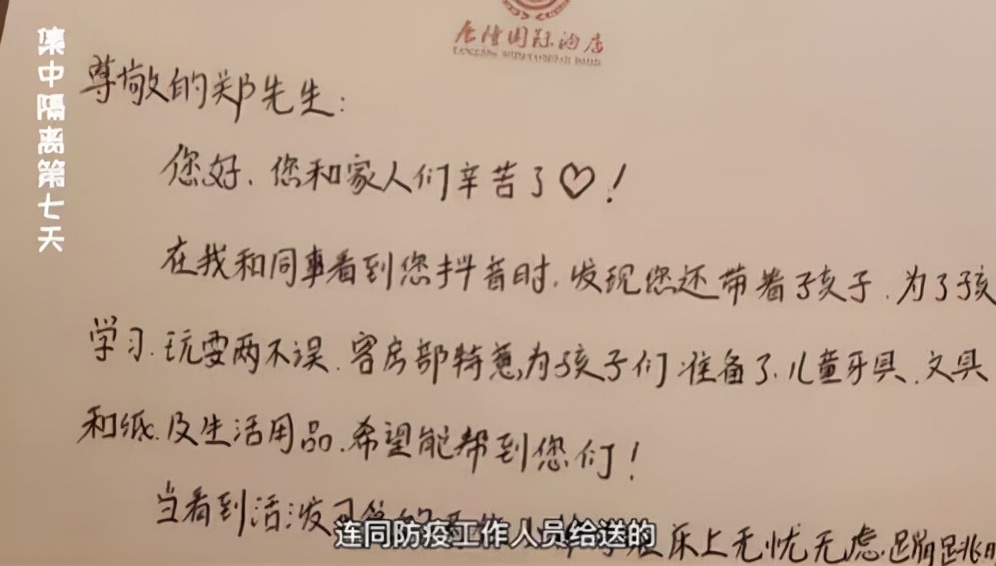 集中隔离第七天
国际酒店
尊敬的郑先生：
您好、您和家人们辛苦了♡！
在我和同事看到您抖音时，发现您还带着孩子、为了孩
学习、玩耍两不误、客房部特意为孩子们准备了儿童牙具、文具
和纸、及生活用品、希望能帮到您们！
当看到活泼可 床上无忧无虑、蹦蹦跳
连同防疫工作人员给送的